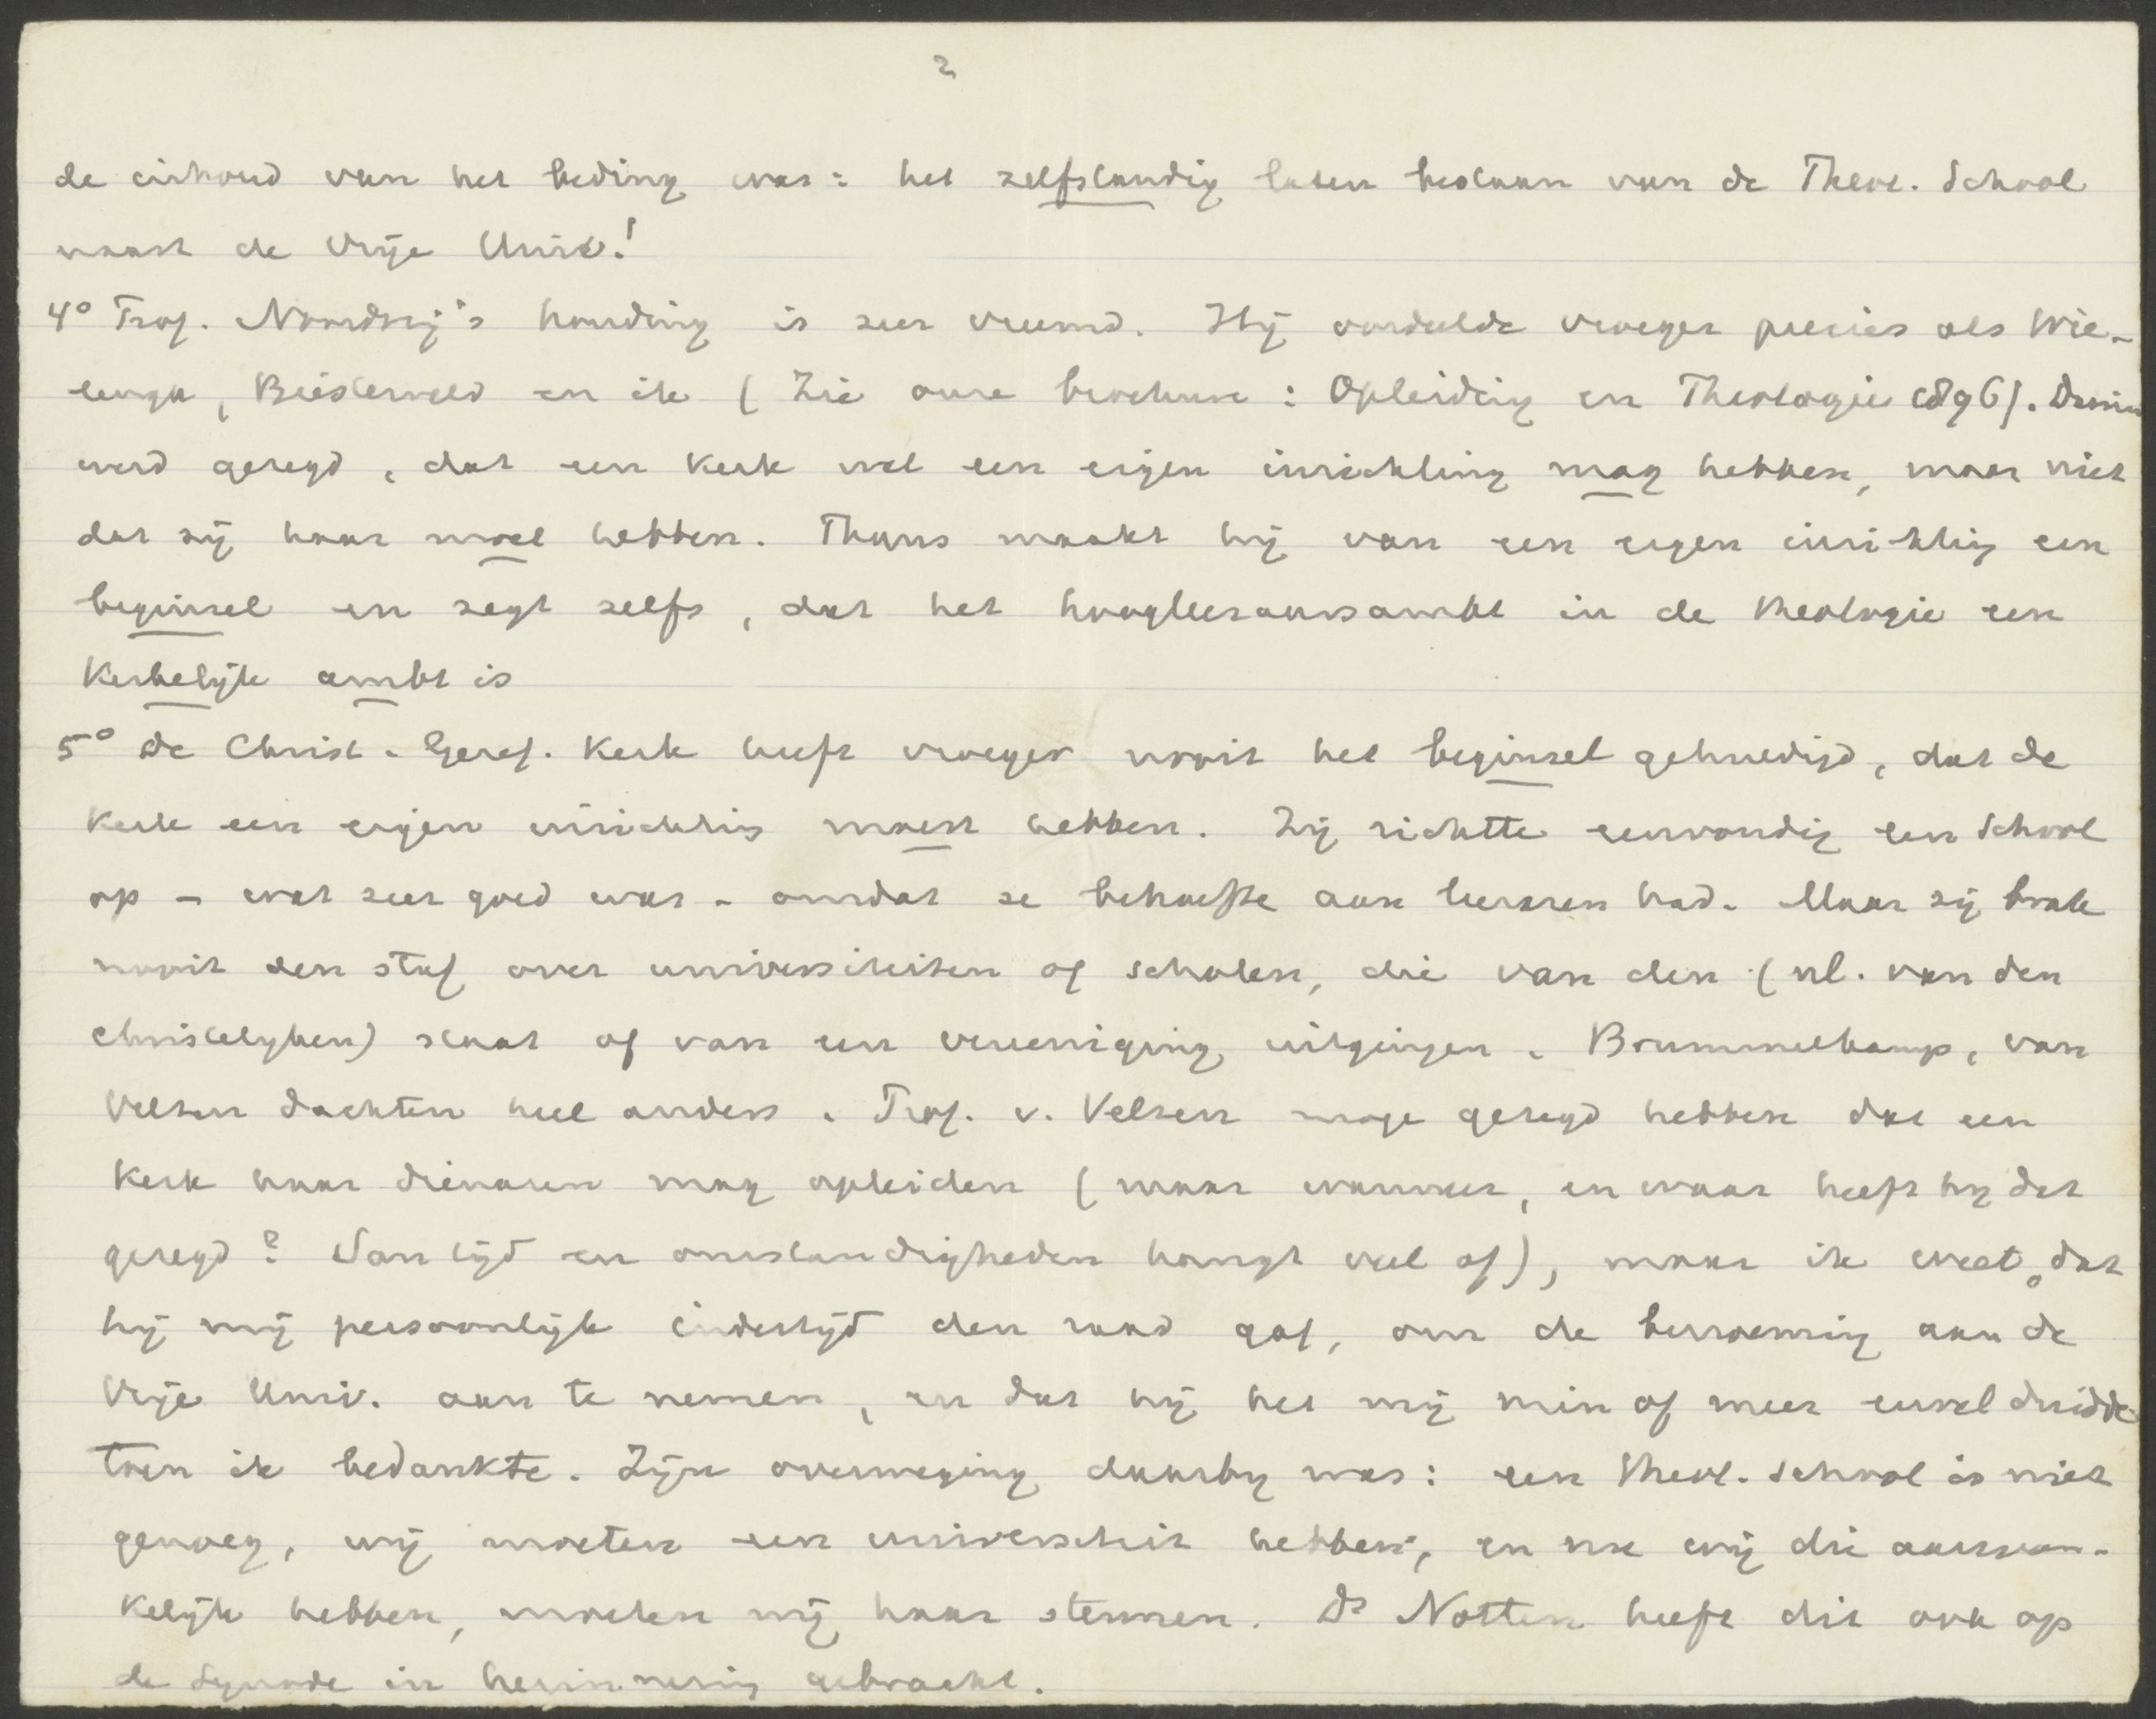 2
de inhoud van het beding was: het zelfstandig laten bestaan van de Theol. School
naast de Vrije Univ.!
4° Prof. Noordzij's houding is zeer vreemd. Hij oordeelde vroeger precies als Wie-
lenga, Biesterveld en ik (Zie onze brochure: Opleiding en Theologie 1896). Daarin
werd gezegd, dat een Kerk wel een eigen inrichting mag hebben, maar niet
dat zij haar moet hebben. Thans maakt hij van een eigen inrichting een
beginsel en zegt zelfs, dat het hoogleeraarsambt in de theologie een
Kerkelijk ambt is
5° De Christ. Geref. Kerk heeft vroeger nooit het beginsel gehuldigd, dat de
Kerk een eigen inrichting moest hebben. Zij richtte eenvoudig een School
op - wat zeer goed was - omdat ze behoefte aan leeraren had. Maar zij brak
nooit den staf over universiteiten of scholen, die van den (nl. van den
christelyken) staat of van een vereeniging uitgingen. Brummelkamp, van
Velzen dachten heel anders. Prof. v. Velzen moge gezegd hebben dat een
Kerk haar dienaren mag opleiden (maar wanneer, en waar heeft hy dat
gezegd? Van tijd en omstandigheden hangt veel af), maar ik weet, dat
hij mij persoonlijk indertijd den raad gaf, om de benoeming aan de
Vrije Univ. aan te nemen, en dat hij het mij min of meer euvel duidde
toen ik bedankte. Zijn overweging daarby was: een Theol. School is niet
genoeg, wij moeten een universiteit hebben; en nu wij die aanvan-
kelijk hebben, moeten wij haar steunen. Ds Notten heeft dit ook op
de Synode in herinnering gebracht.